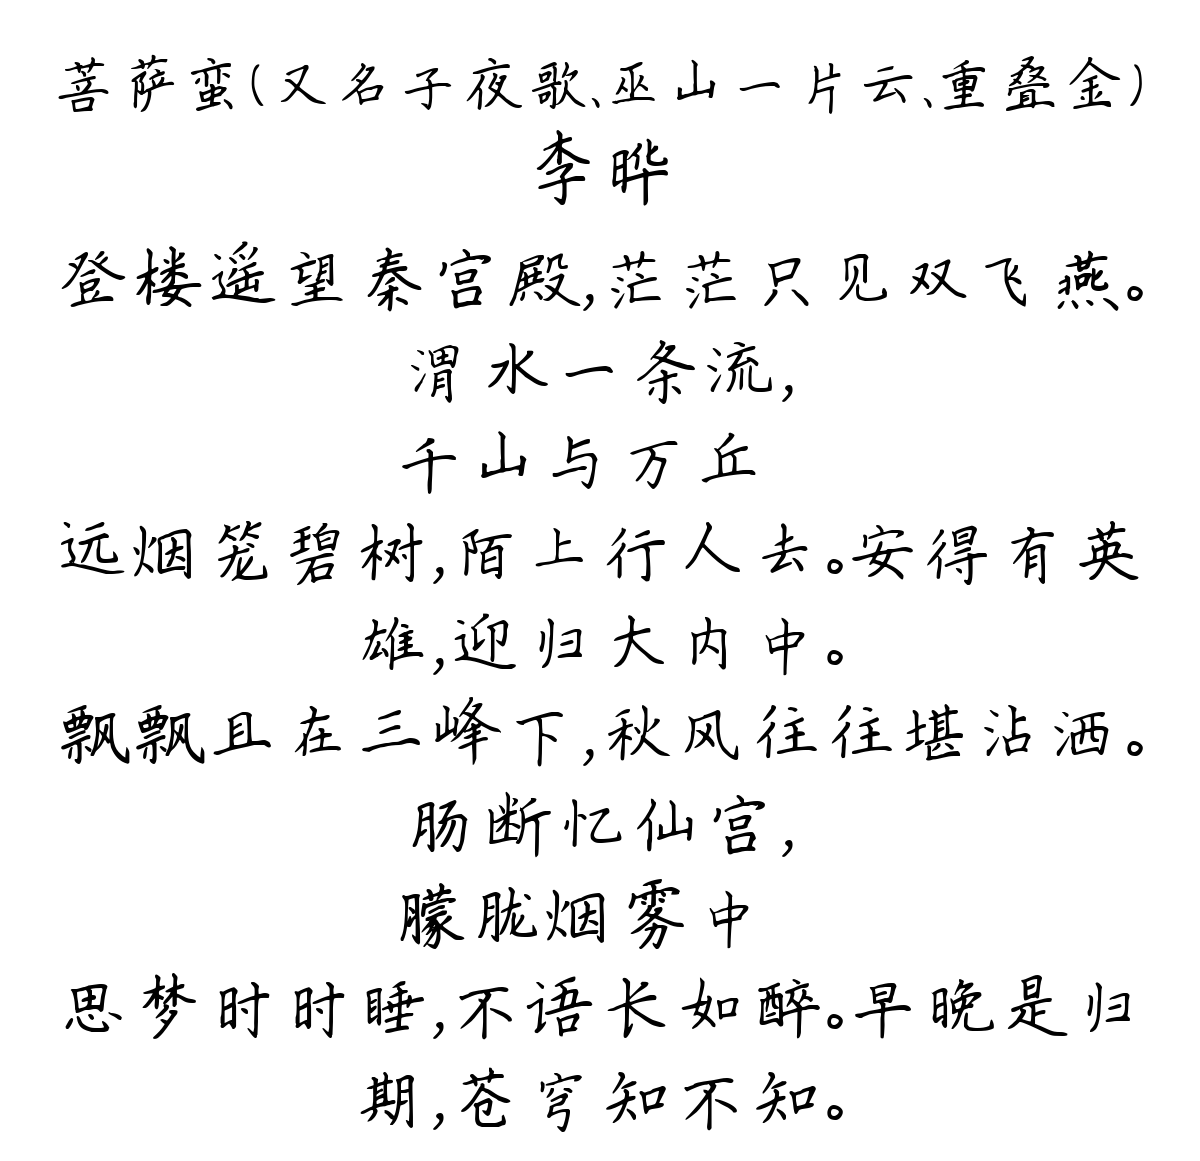 菩萨蛮(又名子夜歌、巫山一片云、重叠金)
李晔
登楼遥望秦宫殿,茫茫只见双飞燕。
渭水一条流,
千山与万丘
远烟笼碧树,陌上行人去。安得有英
雄,迎归大内中。
飘飘且在三峰下,秋风往往堪沾洒。
肠断忆仙宫,
朦胧烟雾中
思梦时时睡,不语长如醉。早晚是归
期,苍穹知不知。